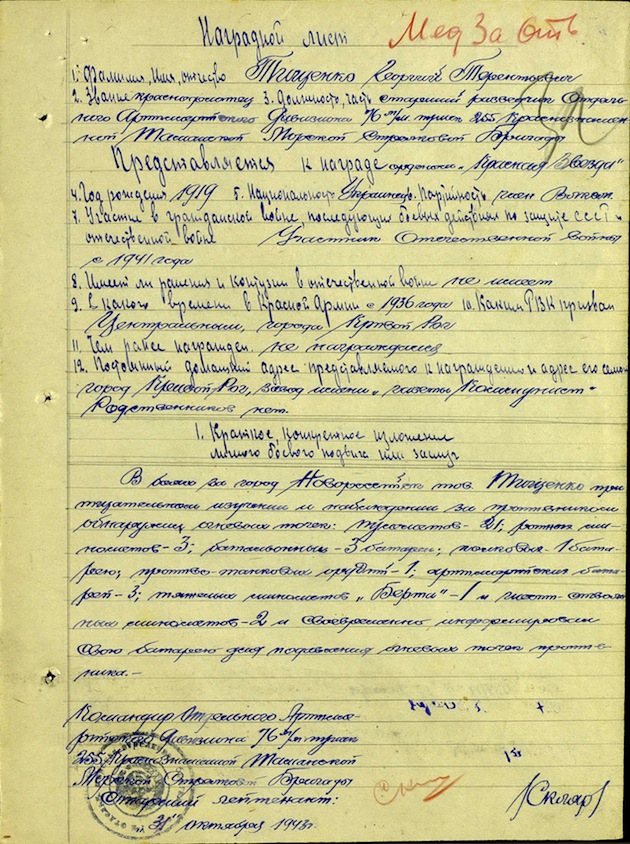 Наградной лист Мед За Отв
1. Фамилия, Имя, отчество Тищенко Георгий Терентьевич
2. Звание краснофлотец 3. Должность, часть старший разведчик Отдель-
ного Артиллерийского Дивизиона 76 м/м пушек 255 Краснознамен-
ной Таманской Морской Стрелковой Бригады
Представляется к награде орденом „Красная Звезда"
4. Год рождения 1919 5. Национальность Украинец. Партийность член ВЛКСМ
7. Участие в гражданской войне, последующих боевых действиях по защите СССР и
отечественной войне Участник Отечественной войны
с 1941 года
8. Имеет ли ранения и контузии в отечественной войне не имеет
9. С какого времени в Красной Армии с 1936 года 10. Каким РВК призван
Центральным, города Кривой Рог
11. Чем ранее награжден. не награждался
12. Постоянный домашний адрес представляемого к награждению и адрес его семьи
город Кривой Рог, завод имени „газеты Коммунист"
Родственников нет.
1. Краткое, конкретное изложение
личного боевого подвига или заслуг
В боях за город Новороссийск тов. Тищенко при
тщательном изучении и наблюдении за противником
обнаружил огневых точек: пулеметов - 21; ротных ми-
нометов - 3; батальонных - 5 батарей; полковых 1 бата-
рею; противо-танковых орудий - 1; артиллерийских бата-
рей - 3; тяжелых минометов „Берта" - 1 и шести ствол-
ных минометов - 2 и своевременно информировал
свою батарею для подавления огневых точек против-
ника. -
Командир Отдельного Артилле-
рийского Дивизиона 76 м/м пушек
255 Краснознаменной Таманской
Морской Стрелковой Бригады
Старший лейтенант: /Скляр/
31 октября 1943 г.